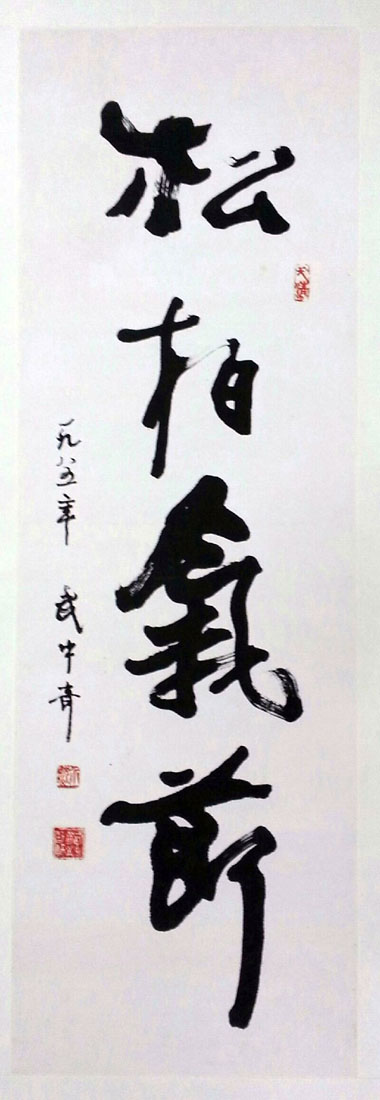 松柏氣節
一九八五年 武中奇